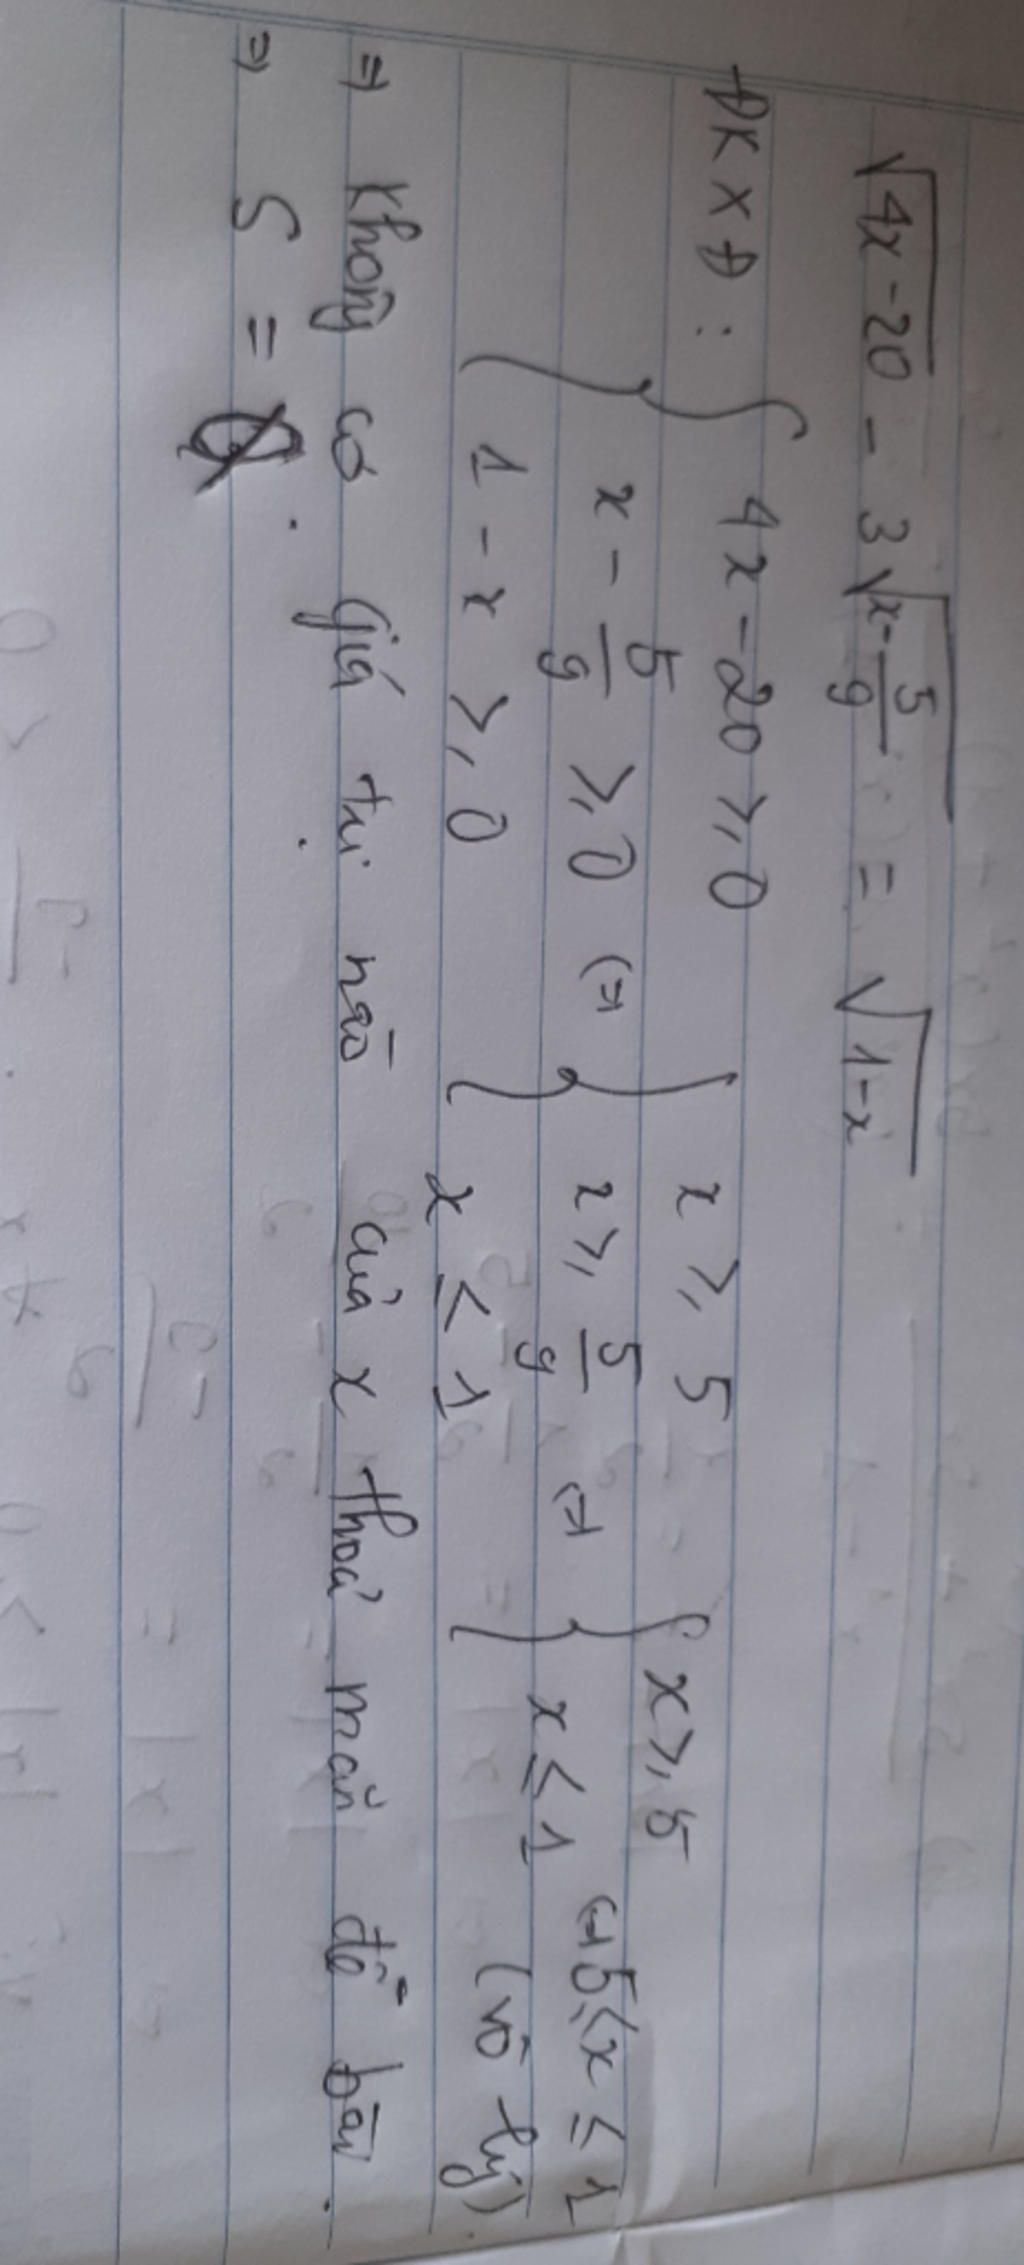 √(4x-20) - 3√(x-5/9) = √(1-x)
ĐKXĐ : { 4x-20 ≥ 0
x - 5/9 ≥ 0 (=)
1 - x ≥ 0
{ x ≥ 5
x ≥ 5/9 (=)
x ≤ 1
{ x ≥ 5
x ≤ 1
(=) 5 ≤ x ≤ 1
(vô lý).
=> Không có giá trị nào của x thoả mãn đề bài.
=> S = ∅.